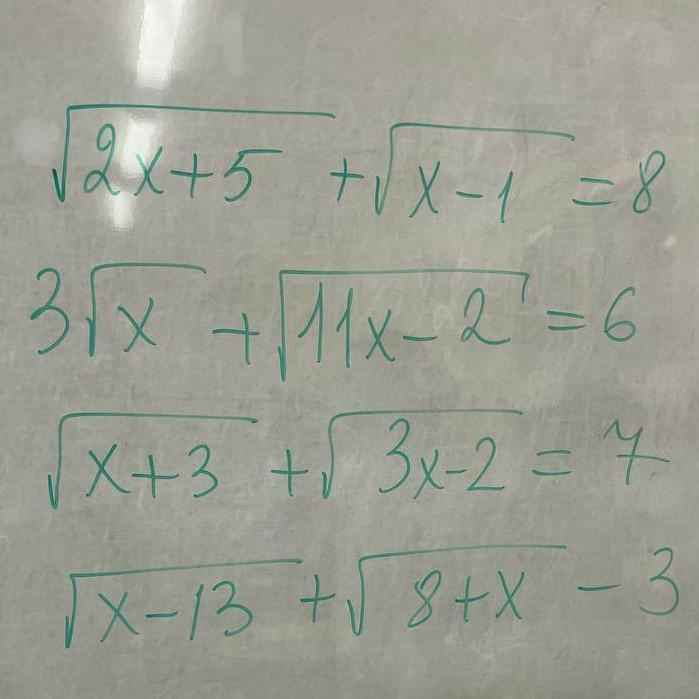 √(2x+5) + √(x-1) = 8
3√x + √(11x-2) = 6
√(x+3) + √(3x-2) = 7
√(x-13) + √(8+x) - 3